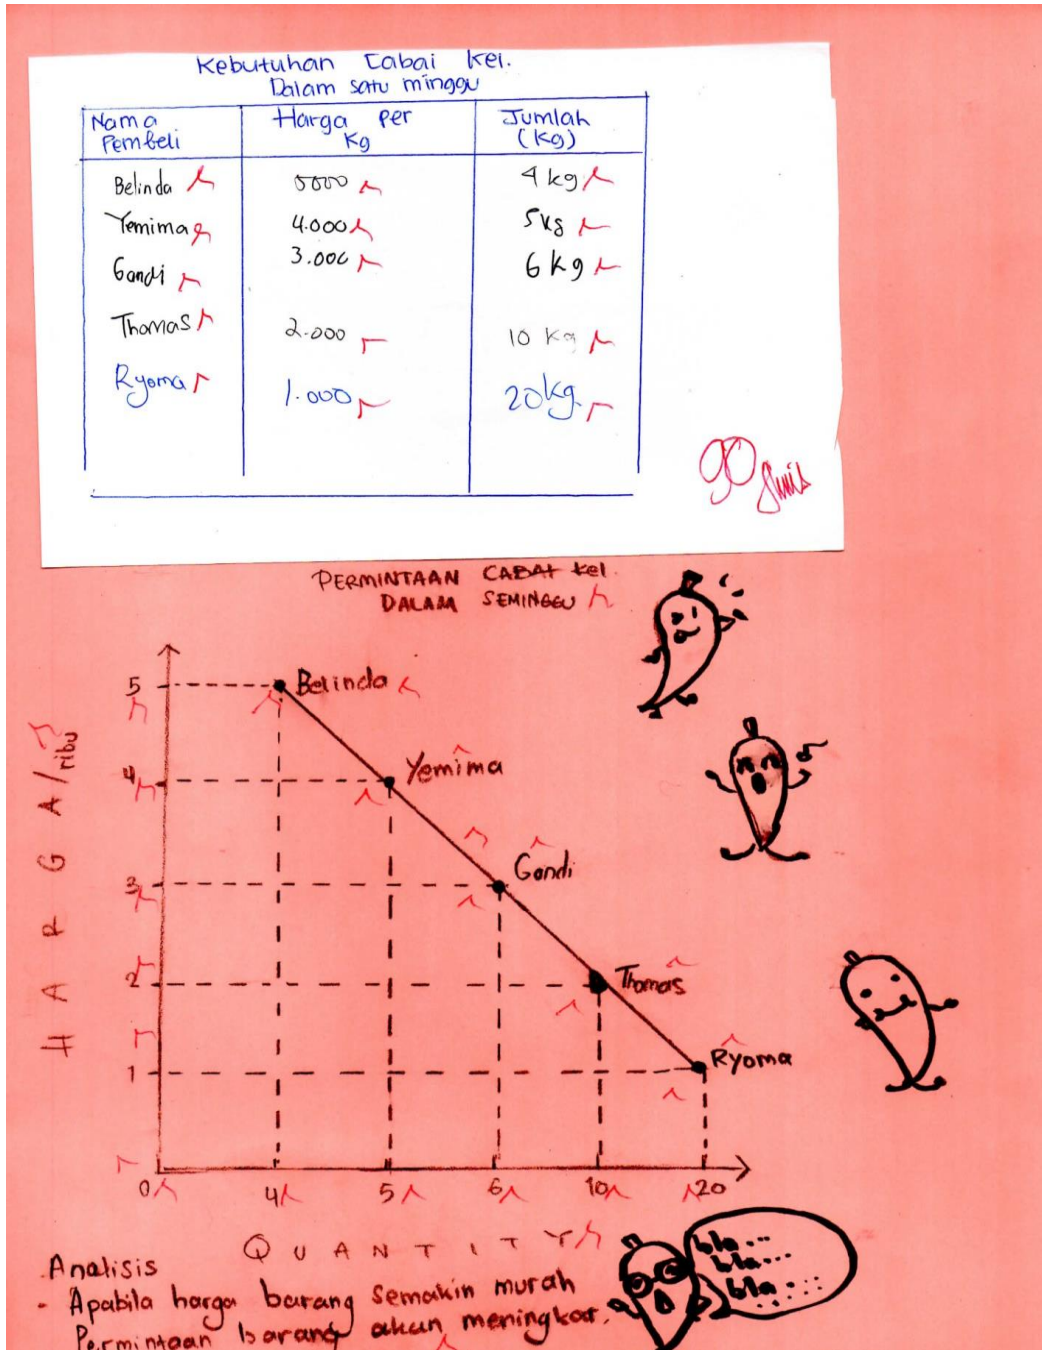 Kebutuhan Cabai Kel.
Dalam satu minggu
Nama Pembeli Harga per Kg Jumlah (Kg)
Belinda 5000 4 kg
Yemima 4.000 5kg
Gandi 3.000 6 kg
Thomas 2.000 10 kg
Ryoma 1.000 20kg.
90
PERMINTAAN CABAI Kel.
DALAM SEMINGGU
5
Belinda
4
Yemima
3
Gandi
2
Thomas
1
Ryoma
HARGA/ribu
0 4 5 6 10 20
QUANTITY
bla...
bla...
bla....
Analisis
- Apabila harga barang semakin murah
Permintaan barang akan meningkat.